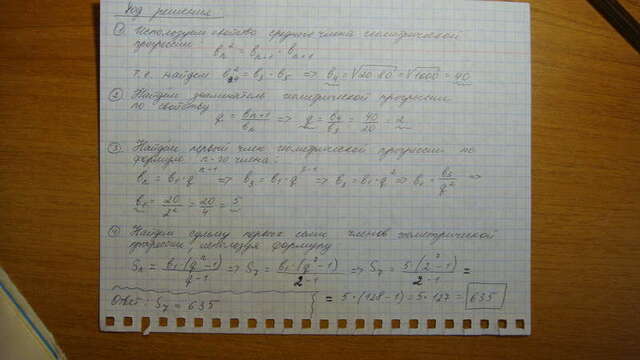 Ход решения
① Используем свойство среднего члена геометрической
прогрессии: bₙ² = bₙ₋₁ · bₙ₊₁
т.е. найдём b₄² = b₃ · b₅ ⇒ b₄ = √20·80 = √1600 = 40
② Найдём знаменатель геометрической прогрессии
по свойству
q = bₙ₊₁/bₙ ⇒ q = b₄/b₃ = 40/20 = 2
③ Найдём первый член геометрической прогрессии по
формуле n-го члена:
bₙ = b₁·qⁿ⁻¹ ⇒ b₃ = b₁·q³⁻¹ ⇒ b₃ = b₁·q² ⇒ b₁ = b₃/q² ⇒
b₁ = 20/2² = 20/4 = 5
④ Найдём сумму первых семи членов геометрической
прогрессии, используя формулу
Sₙ = b₁·(qⁿ-1)/q-1 ⇒ S₇ = b₁·(q⁷-1)/2-1 ⇒ S₇ = 5·(2⁷-1)/2-1 =
= 5·(128-1) = 5·127 = 635
Ответ: S₇ = 635